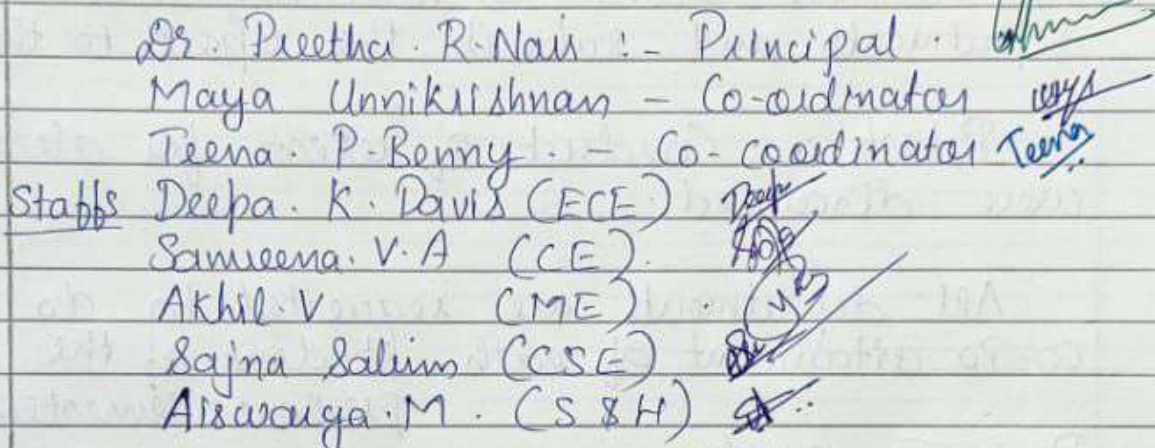 Dr. Preetha R. Nair :- Principal.
Maya Unnikrishnan - Co-ordinator
Teena. P. Benny. - Co-coordinator Teena
Staffs Deepa. K. Davis (ECE) Deepa
Sameena. V. A (CE).
Akhil. V (ME)
Sajna Salim (CSE)
Aiswarya. M. (S & H)